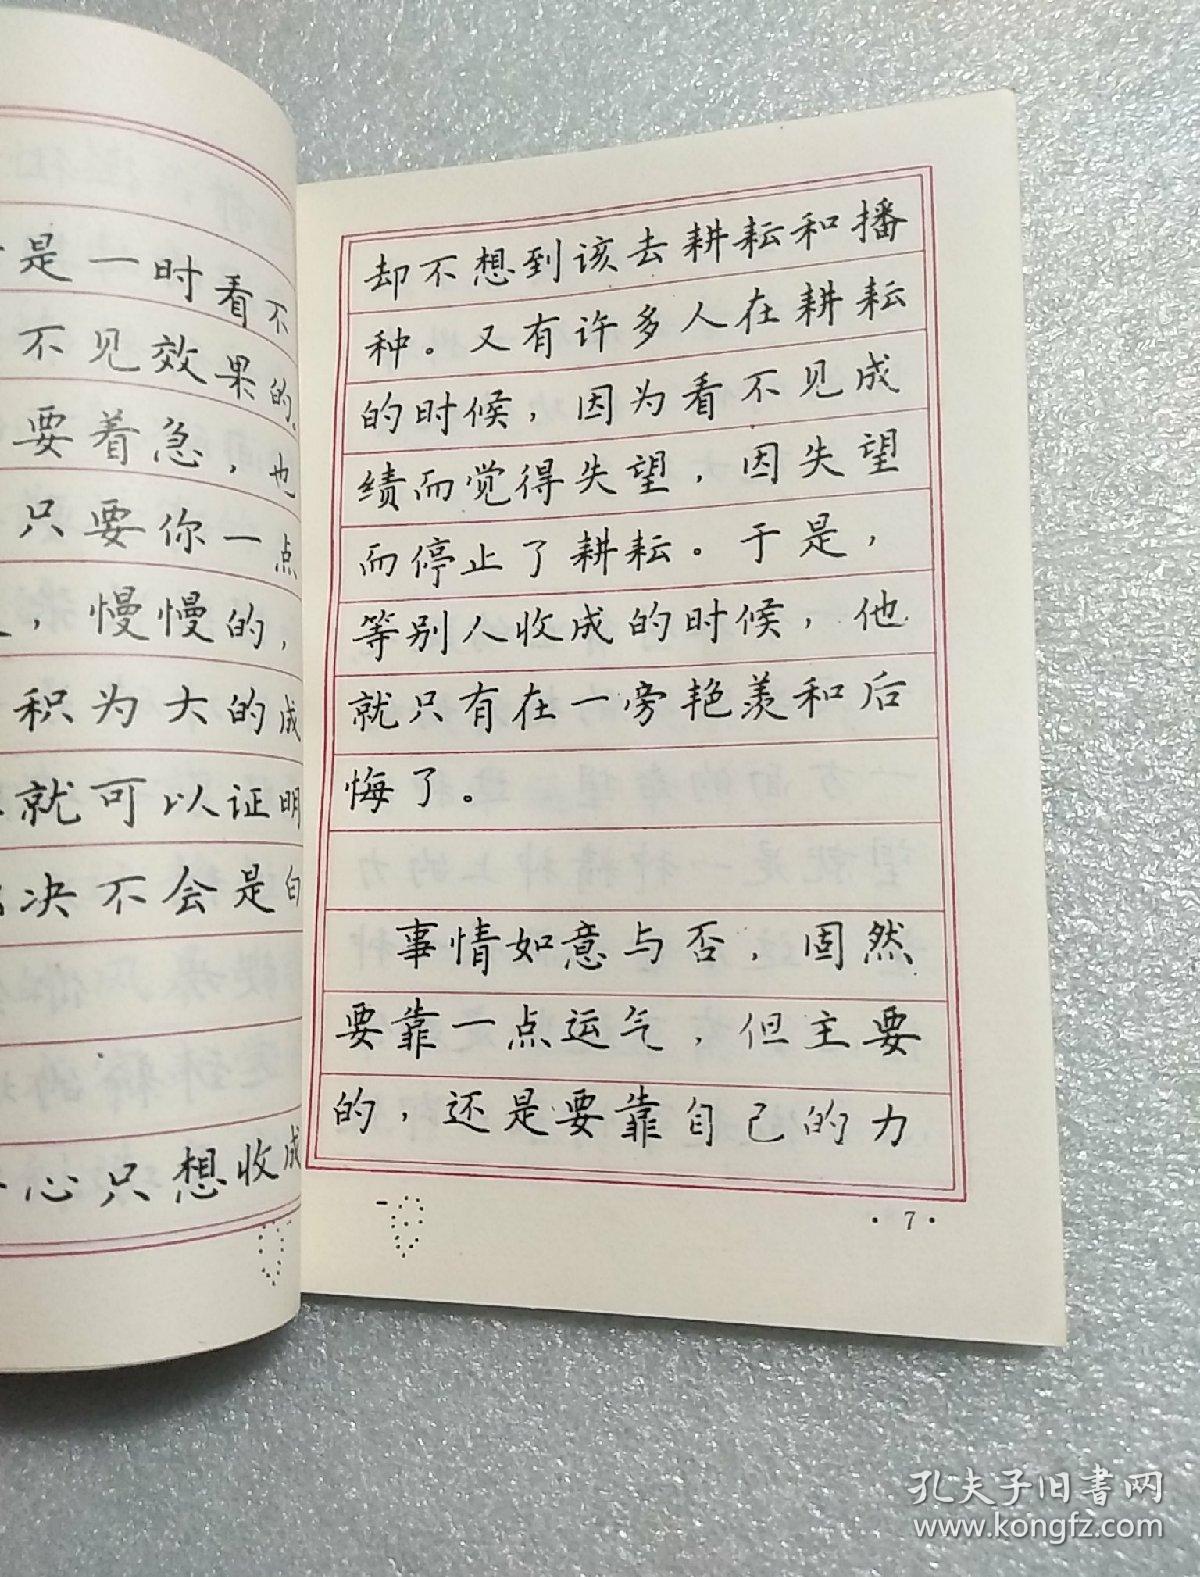 是一时看不
不见效果的。
要着急，也
只要你一点
，慢慢的，
积为大的成
就可以证明
决不会是白
心只想收成
却不想到该去耕耘和播
种。又有许多人在耕耘
的时候，因为看不见成
绩而觉得失望，因失望
而停止了耕耘。于是，
等别人收成的时候，他
就只有在一旁艳羡和后
悔了。
事情如意与否，固然
要靠一点运气，但主要
的，还是要靠自己的力
·7·
孔夫子旧书网
www.kongfz.com